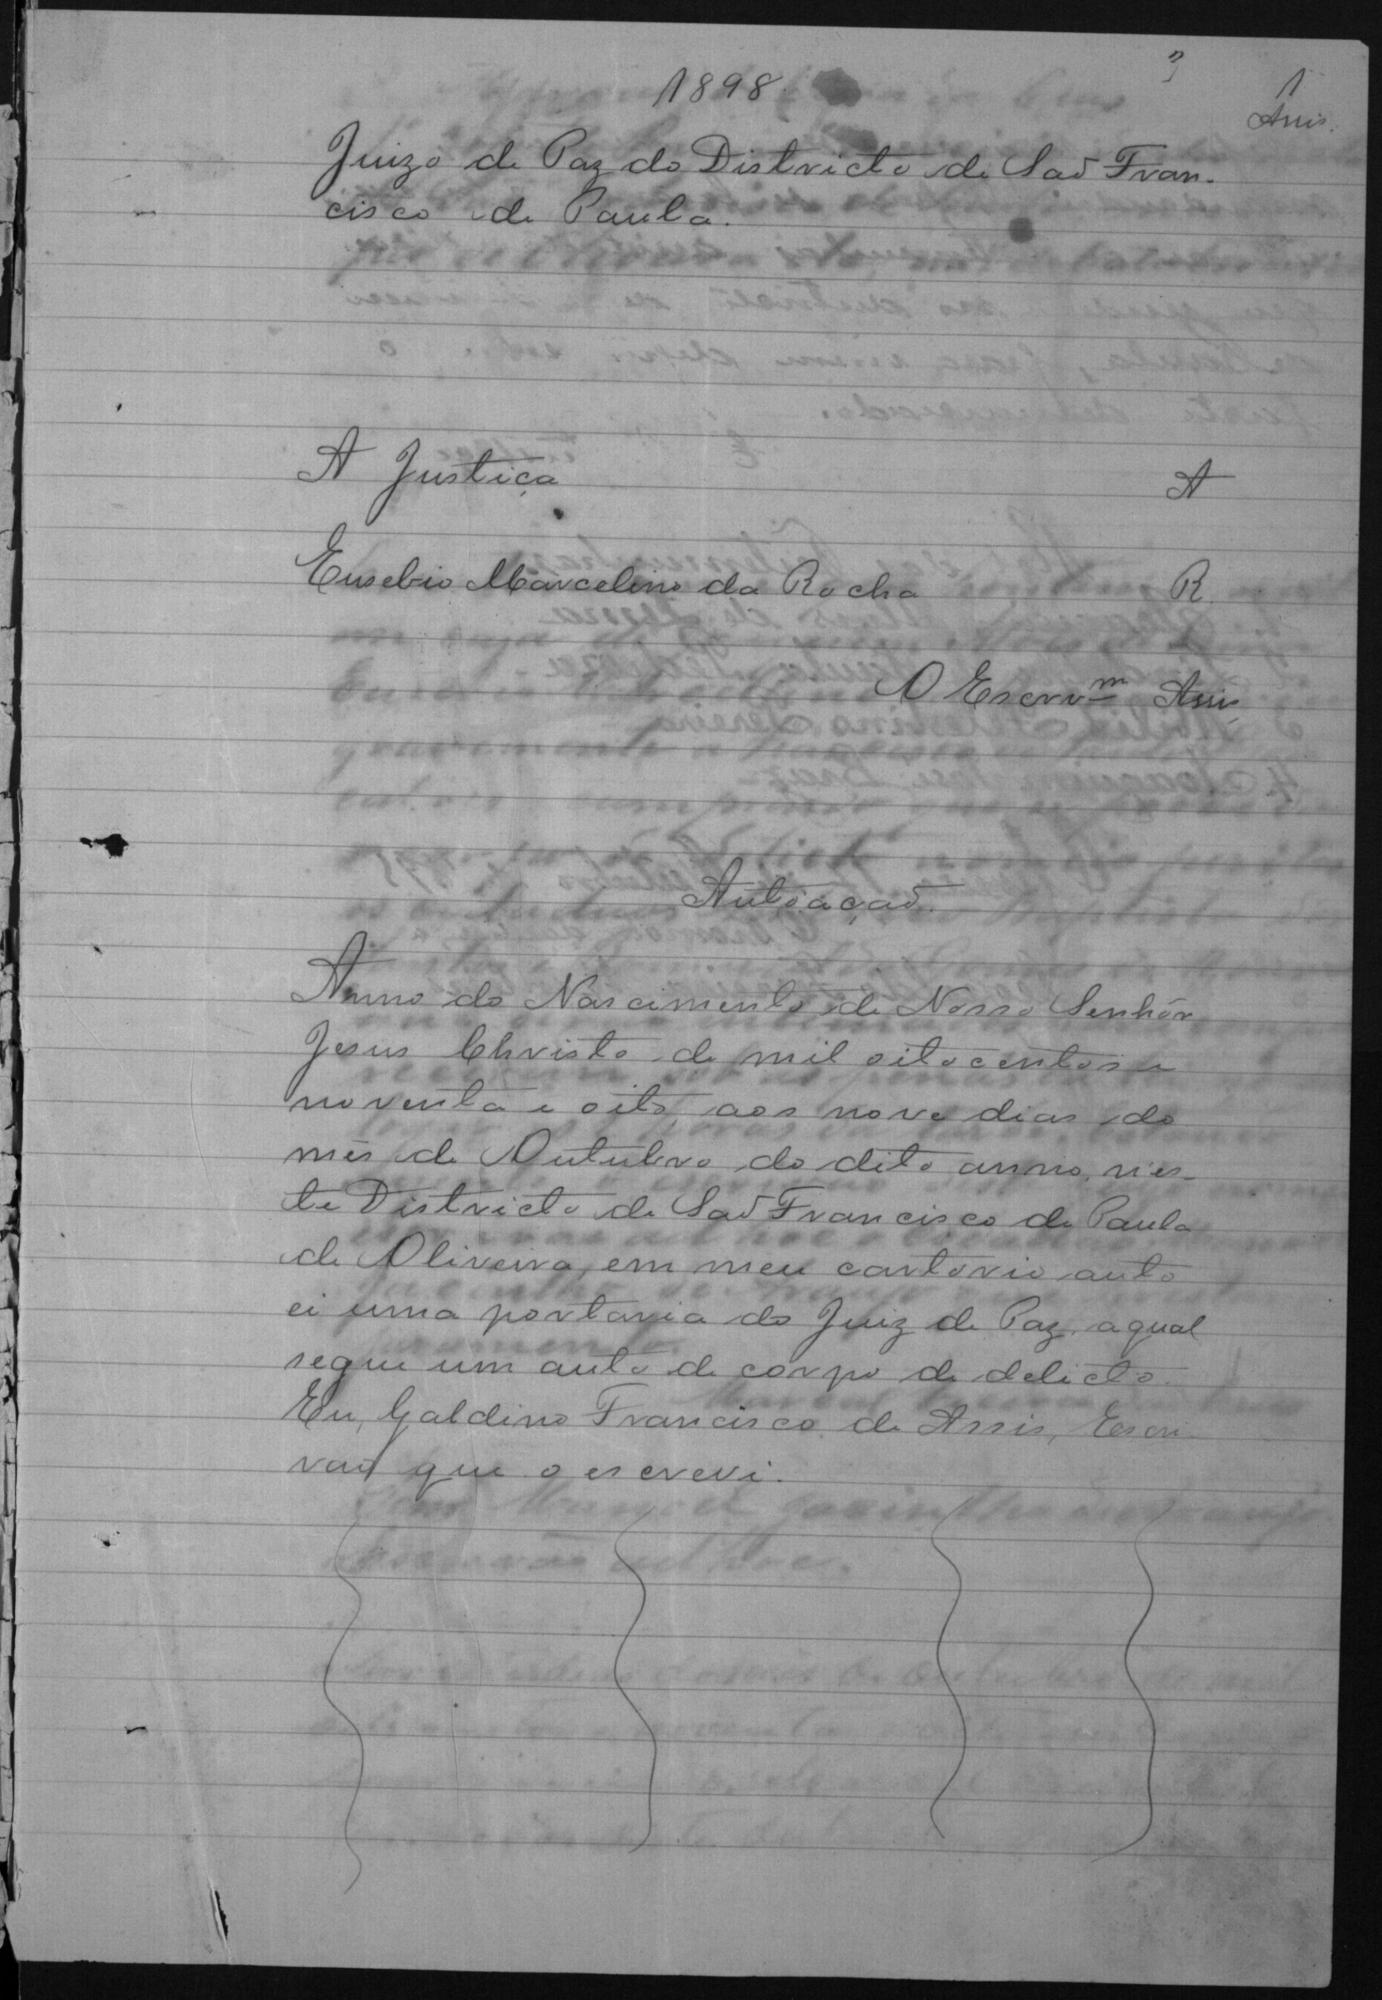 1898
1
Assis.
Juizo de Paz do Districto de Saõ Fran-
cisco de Paula.
A Justiça A
Eusebio Marcelino da Rocha R.
O Escrv^m Assis
Autoaçaõ.
Anno do Nascimento de Nosso Senhôr
Jesus Christo de mil oitocentos e
noventa e oito, aos nove dias do
mês de Outubro do dito anno, nes-
te Districto de Saõ Francisco de Paula
de Oliveira, em meu cartorio auto
ei uma portaria do Juiz de Paz, a qual
segue um auto de corpo de delicto.
Eu, Galdino Francisco de Assis, Escri-
vaõ que o escrevi.